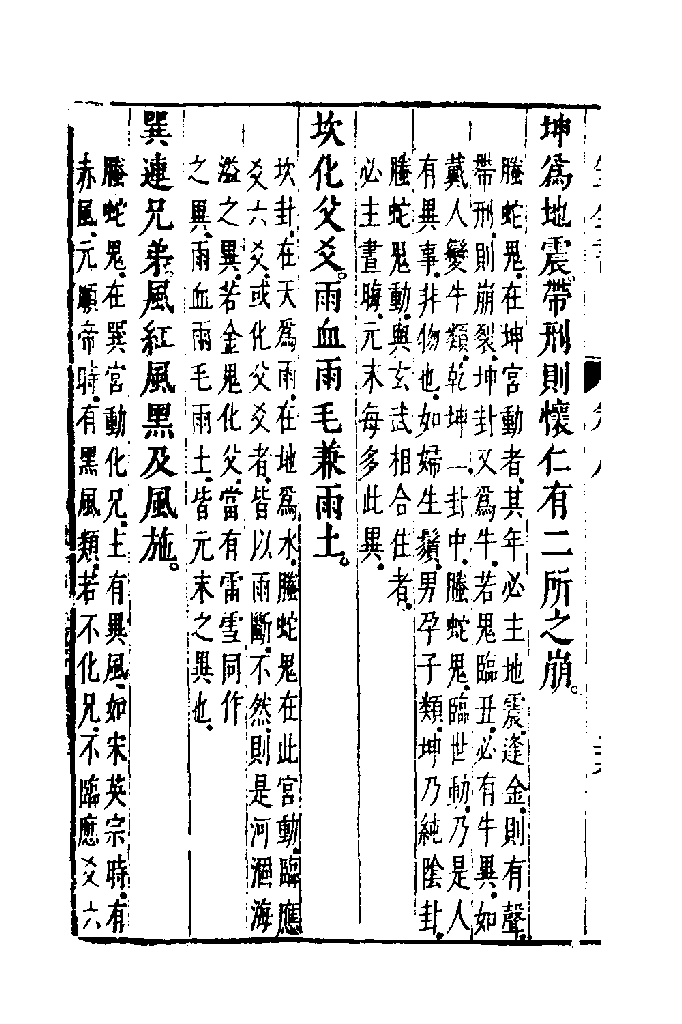 坤爲地震帶刑則懷仁有二所之崩。
螣蛇鬼在坤宮動者其年必主地震逢金則有聲
帶刑則崩裂坤卦又爲牛若鬼臨丑必有牛異如
戴人變牛類乾坤二卦中螣蛇鬼臨世動乃是人
有異事非物也如婦生鬚男孕子類坤乃純陰卦
螣蛇鬼動與玄武相合住者
必主晝晦元末每多此異
坎化父爻。雨血雨毛兼雨土。
坎卦在天爲雨在地爲水螣蛇鬼在此宮動臨應
爻六爻或化父爻者皆以雨斷不然則是河涸海
溢之異若金鬼化父當有雷雪同作
之異雨血雨毛雨土皆元末之異也
巽連兄弟。風紅風黑及風施。
螣蛇鬼在巽宮動化兄主有異風如宋英宗時有
赤風元順帝時有黑風類若不化兄不臨應爻六